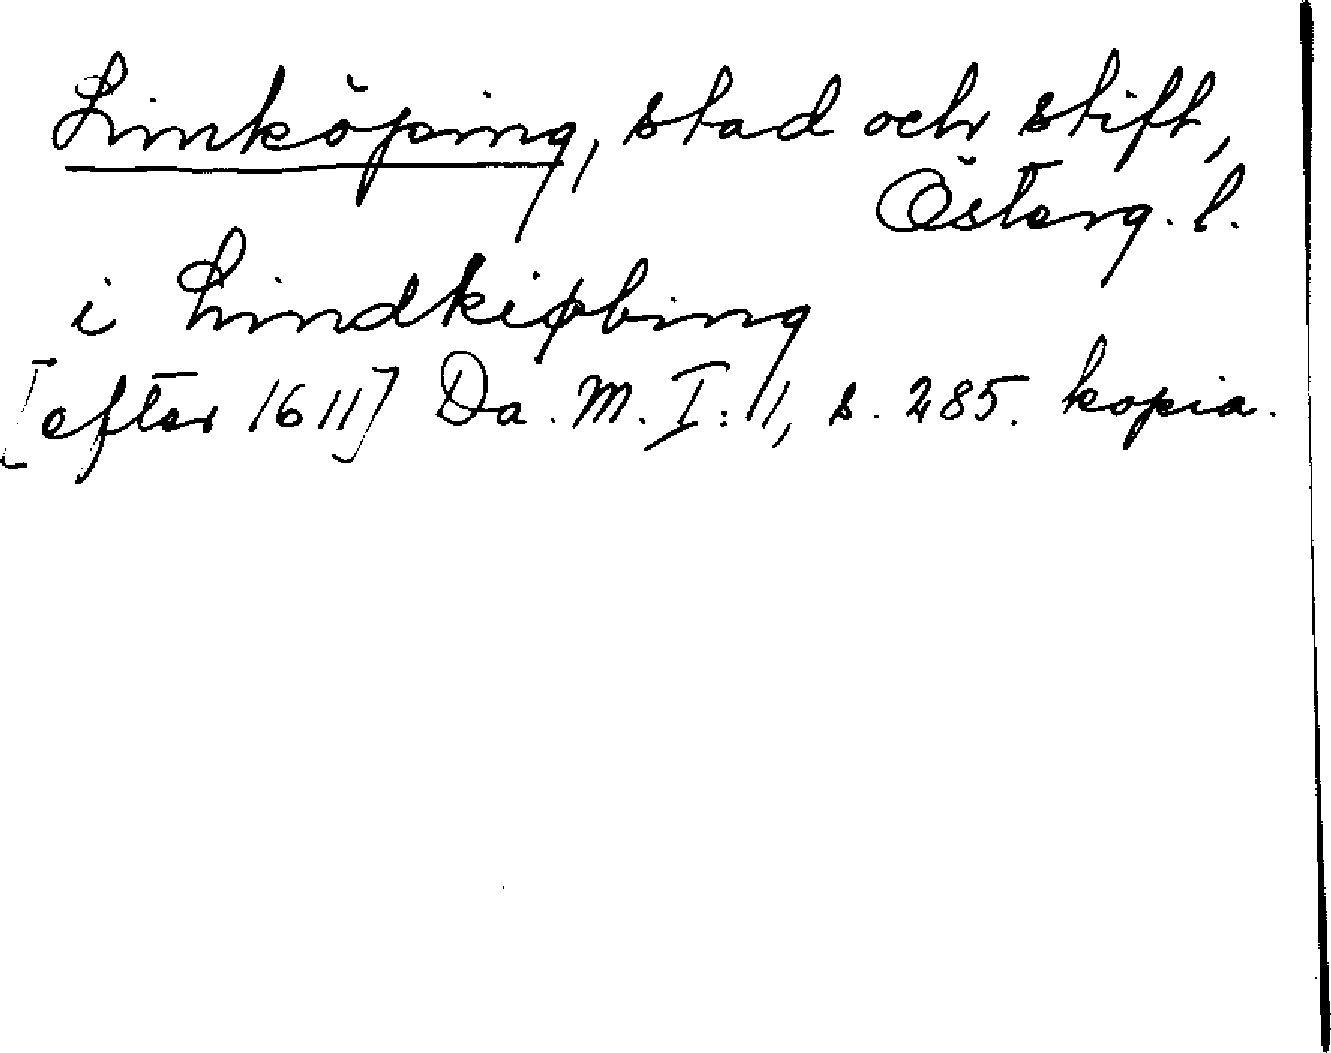 Linköping, stad och stift,
Österg. l.
i Lindkiøbing
[efter 1611] Da. M. I: 11, s. 285. kopia.